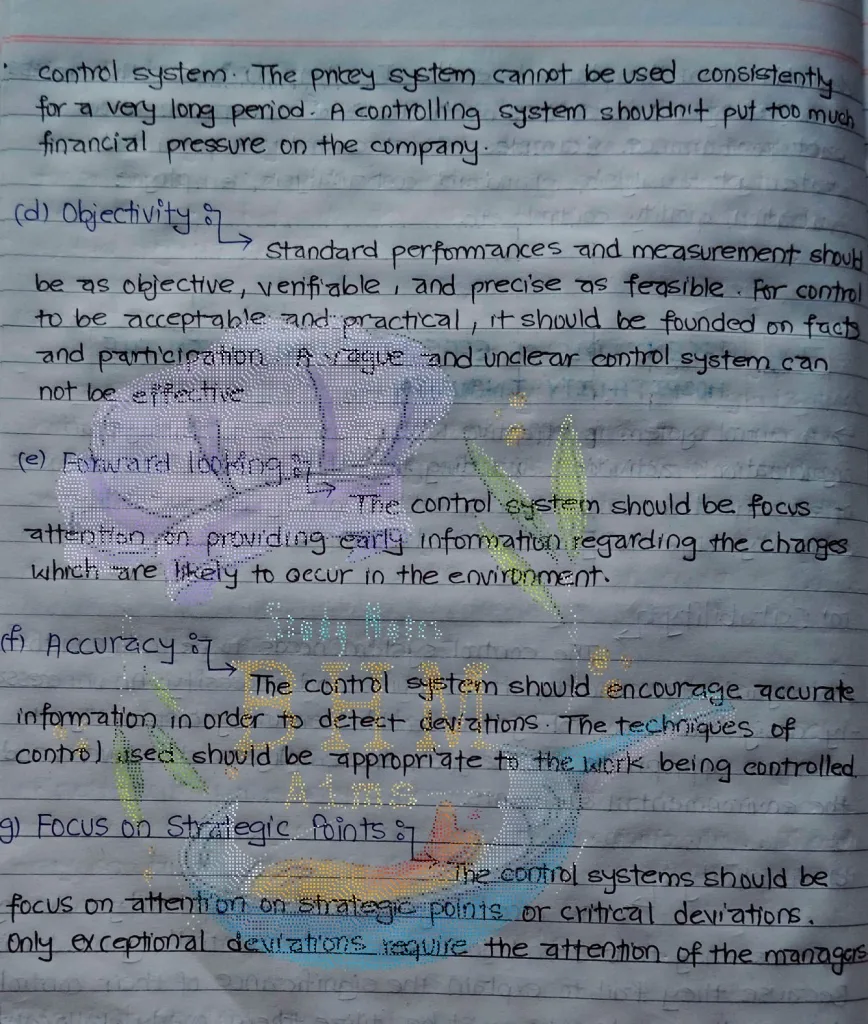 control system. The pricey system cannot be used consistently
for a very long period. A controlling system shouldn't put too much
financial pressure on the company.
(d) Objectivity :
Standard performances and measurement should
be as objective, verifiable, and precise as feasible. For control
to be acceptable and practical, it should be founded on facts
and participation. A vague and unclear control system can
not be effective
(e) Forward looking :
The control system should be focus
attention on providing early information regarding the changes
which are likely to occur in the environment.
(f) Accuracy :
The control system should encourage accurate
information in order to detect deviations. The techniques of
control used should be appropriate to the work being controlled
g) Focus on Strategic Points :
The control systems should be
focus on attention on strategic points or critical deviations.
Only exceptional deviations require the attention of the managers
Study Notes
BHM
Aims